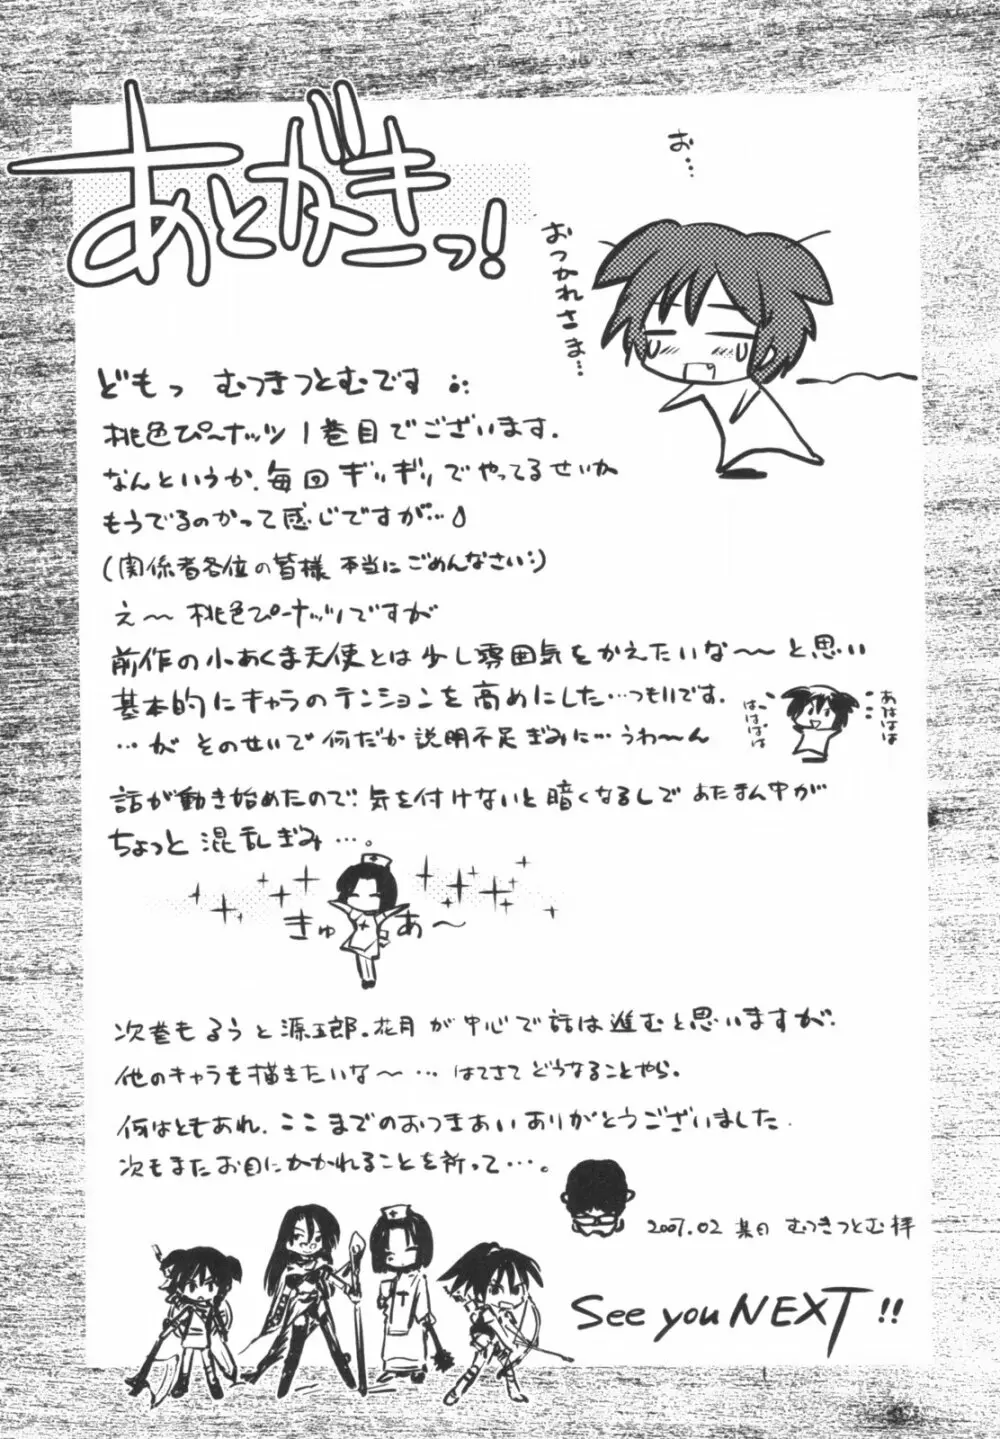 あとがきっ!
お…
おつかれさま…
どもっ むつきつとむです
桃色ぴーナッツ1巻目でございます.
なんというか.毎回 ギリギリでやってるせいか
もうでるのかって感じですが…
(関係者各位の皆様 本当にごめんなさい)
え〜 桃色ぴーナッツですが
前作の小あくま天使とは少し雰囲気をかえたいな〜〜と思い
基本的にキャラのテンションを高めにした…つもりです.
…が そのせいで 何だか説明不足ぎみに… うわ〜ん
あはははは
はははは
話が動き始めたので.気を付けないと暗くなるしで あたまん中が
ちょっと 混乱ぎみ…。
きゅあ〜
次巻も るうと源五郎.花月が中心で話は進むと思いますが.
他のキャラも描きたいな〜… はてさて どうなることやら。
何はともあれ.ここまでのおつきあいありがとうございました.
次もまたお目にかかれることを祈って…。
2007.02 某日 むつきつとむ拝
See you NEXT!!